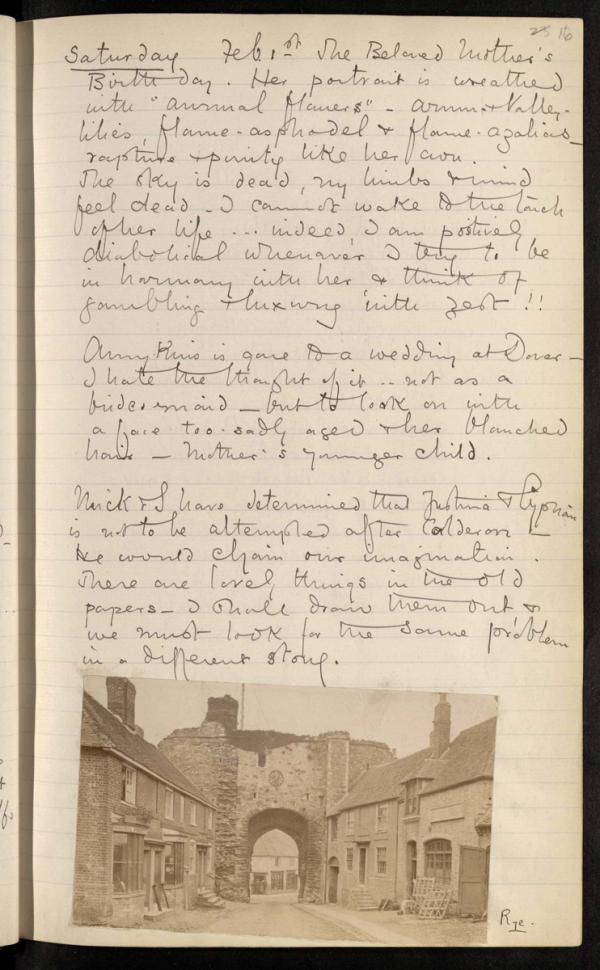 25 16
Saturday Feb 1st The Beloved Mother's
Birthday. Her portrait is wreathed
with "animal flowers" - arum & Valley-
lilies, flame-asphodel & flame-azalias -
rapture & purity like her own.
The sky is dead, my limbs & mind
feel dead - I cannot wake to the touch
of her life ... indeed I am positively
diabolical whenever I try to be
in harmony with her & think of
gambling & luxury with zest!!
Amy is gone to a wedding at Dover -
I hate the thought of it .. not as a
bridesmaid - but to look on with
a face too-sadly aged & her blanched
hair - Mother's younger child.
Mick & I have determined that Justina & Cyprian
is not to be attempted after Calderon -
He would chain our imagination.
There are lovely things in the old
papers - I shall draw them out &
we must look for the same problem
in a different story.
Rye.